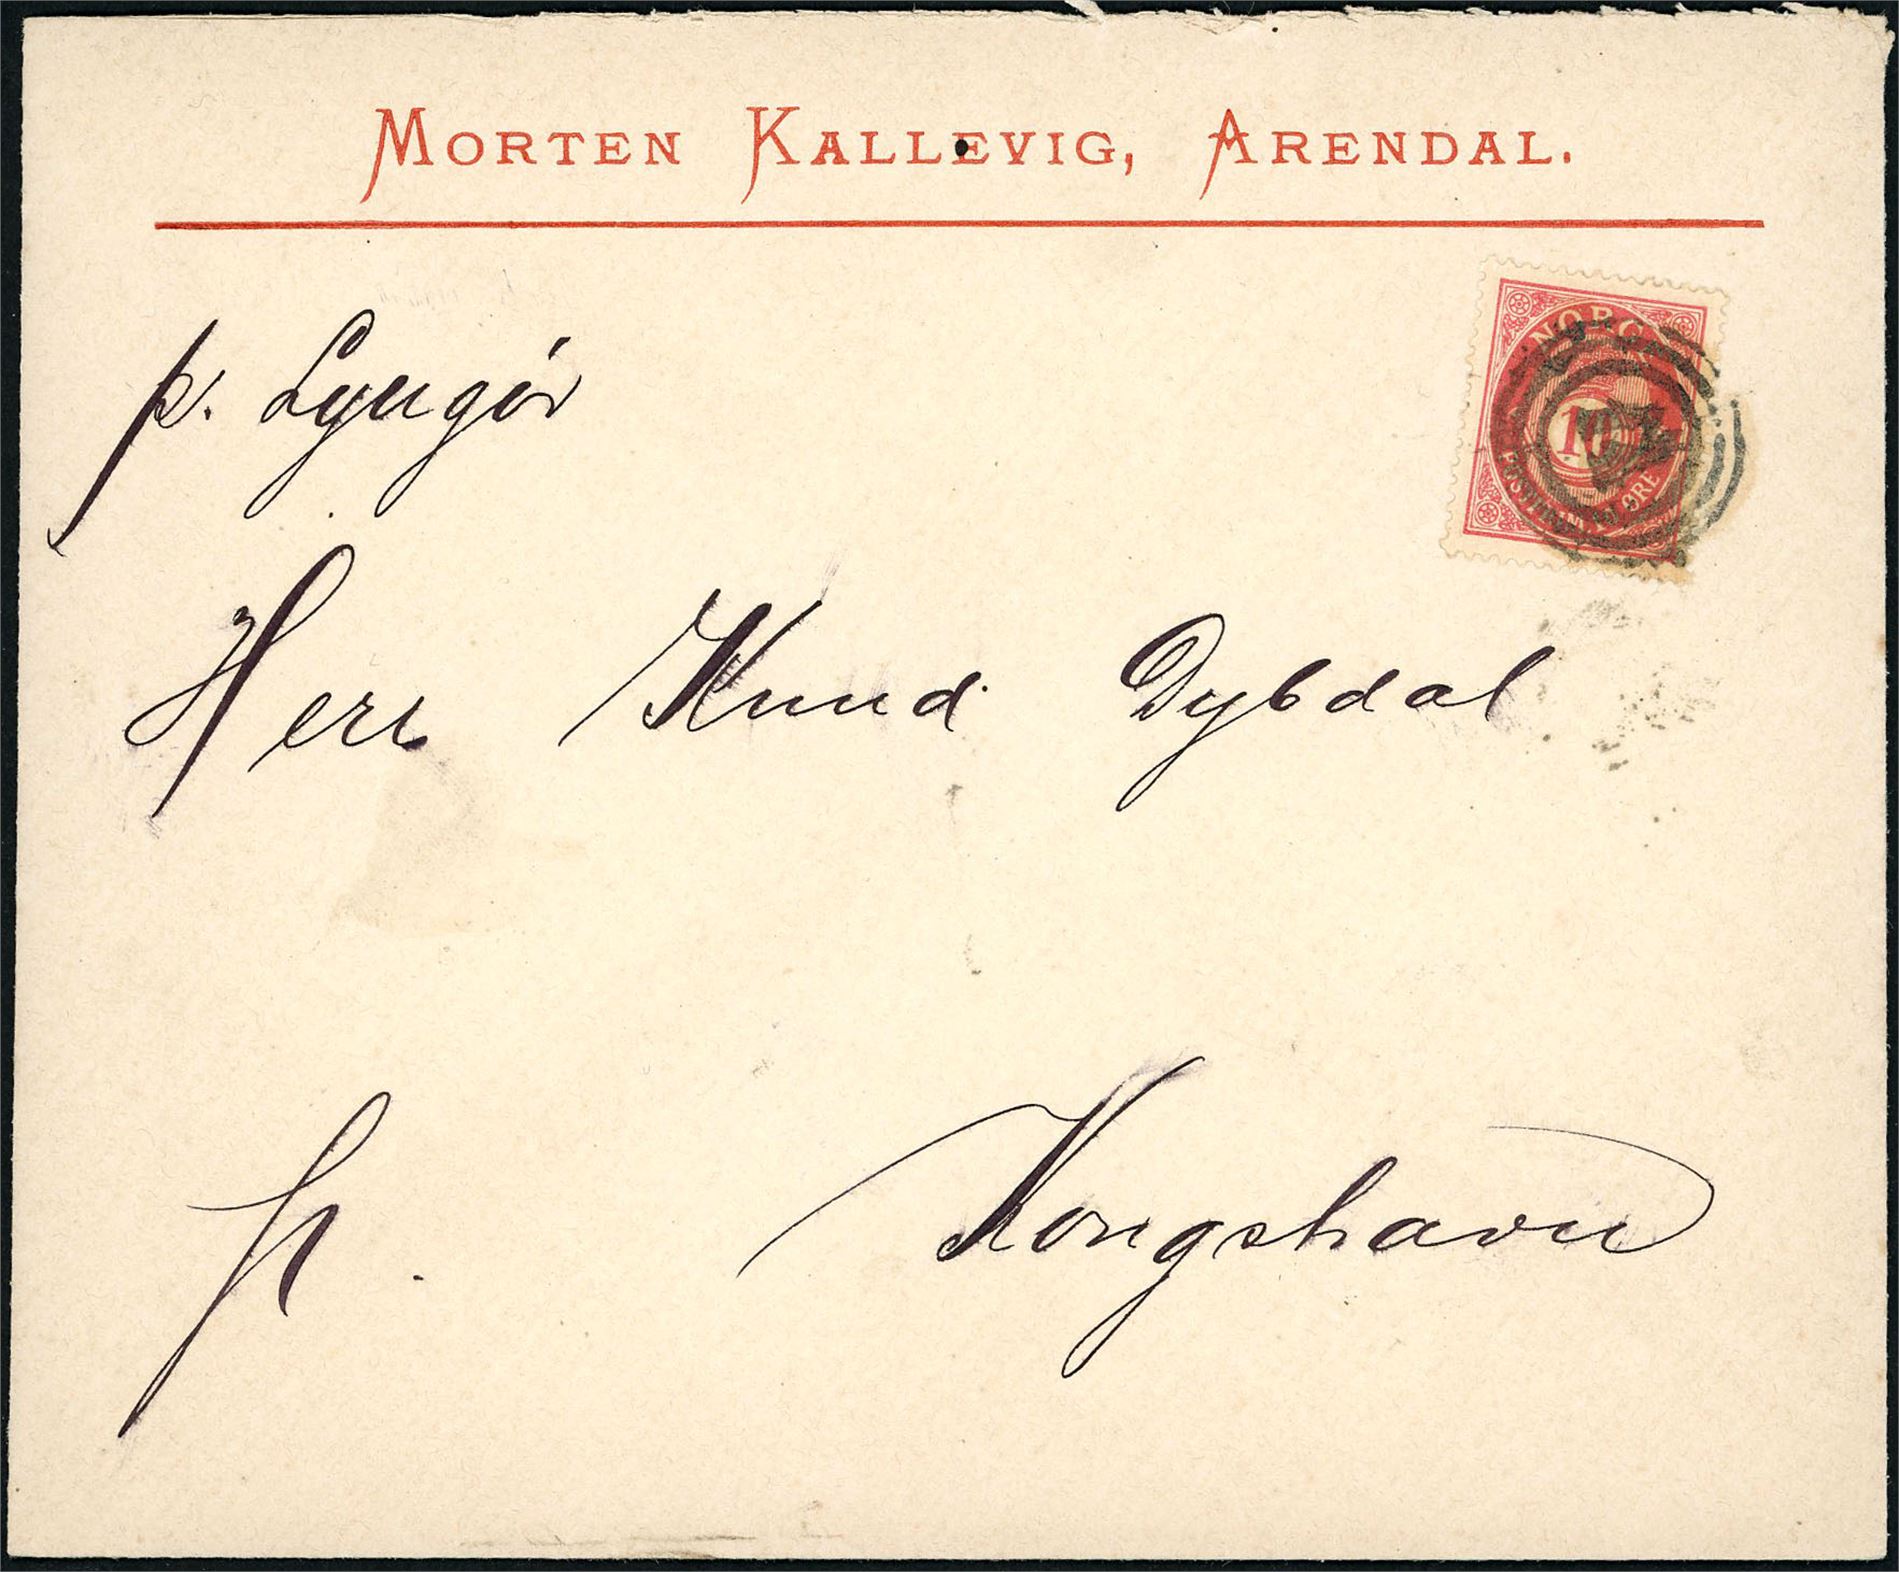 MORTEN KALLEVIG, ARENDAL.
p. Lyngör
NORGE
10
POSTFRIM. 10 ØRE
Herr Knud Dybdal
Kongshavn